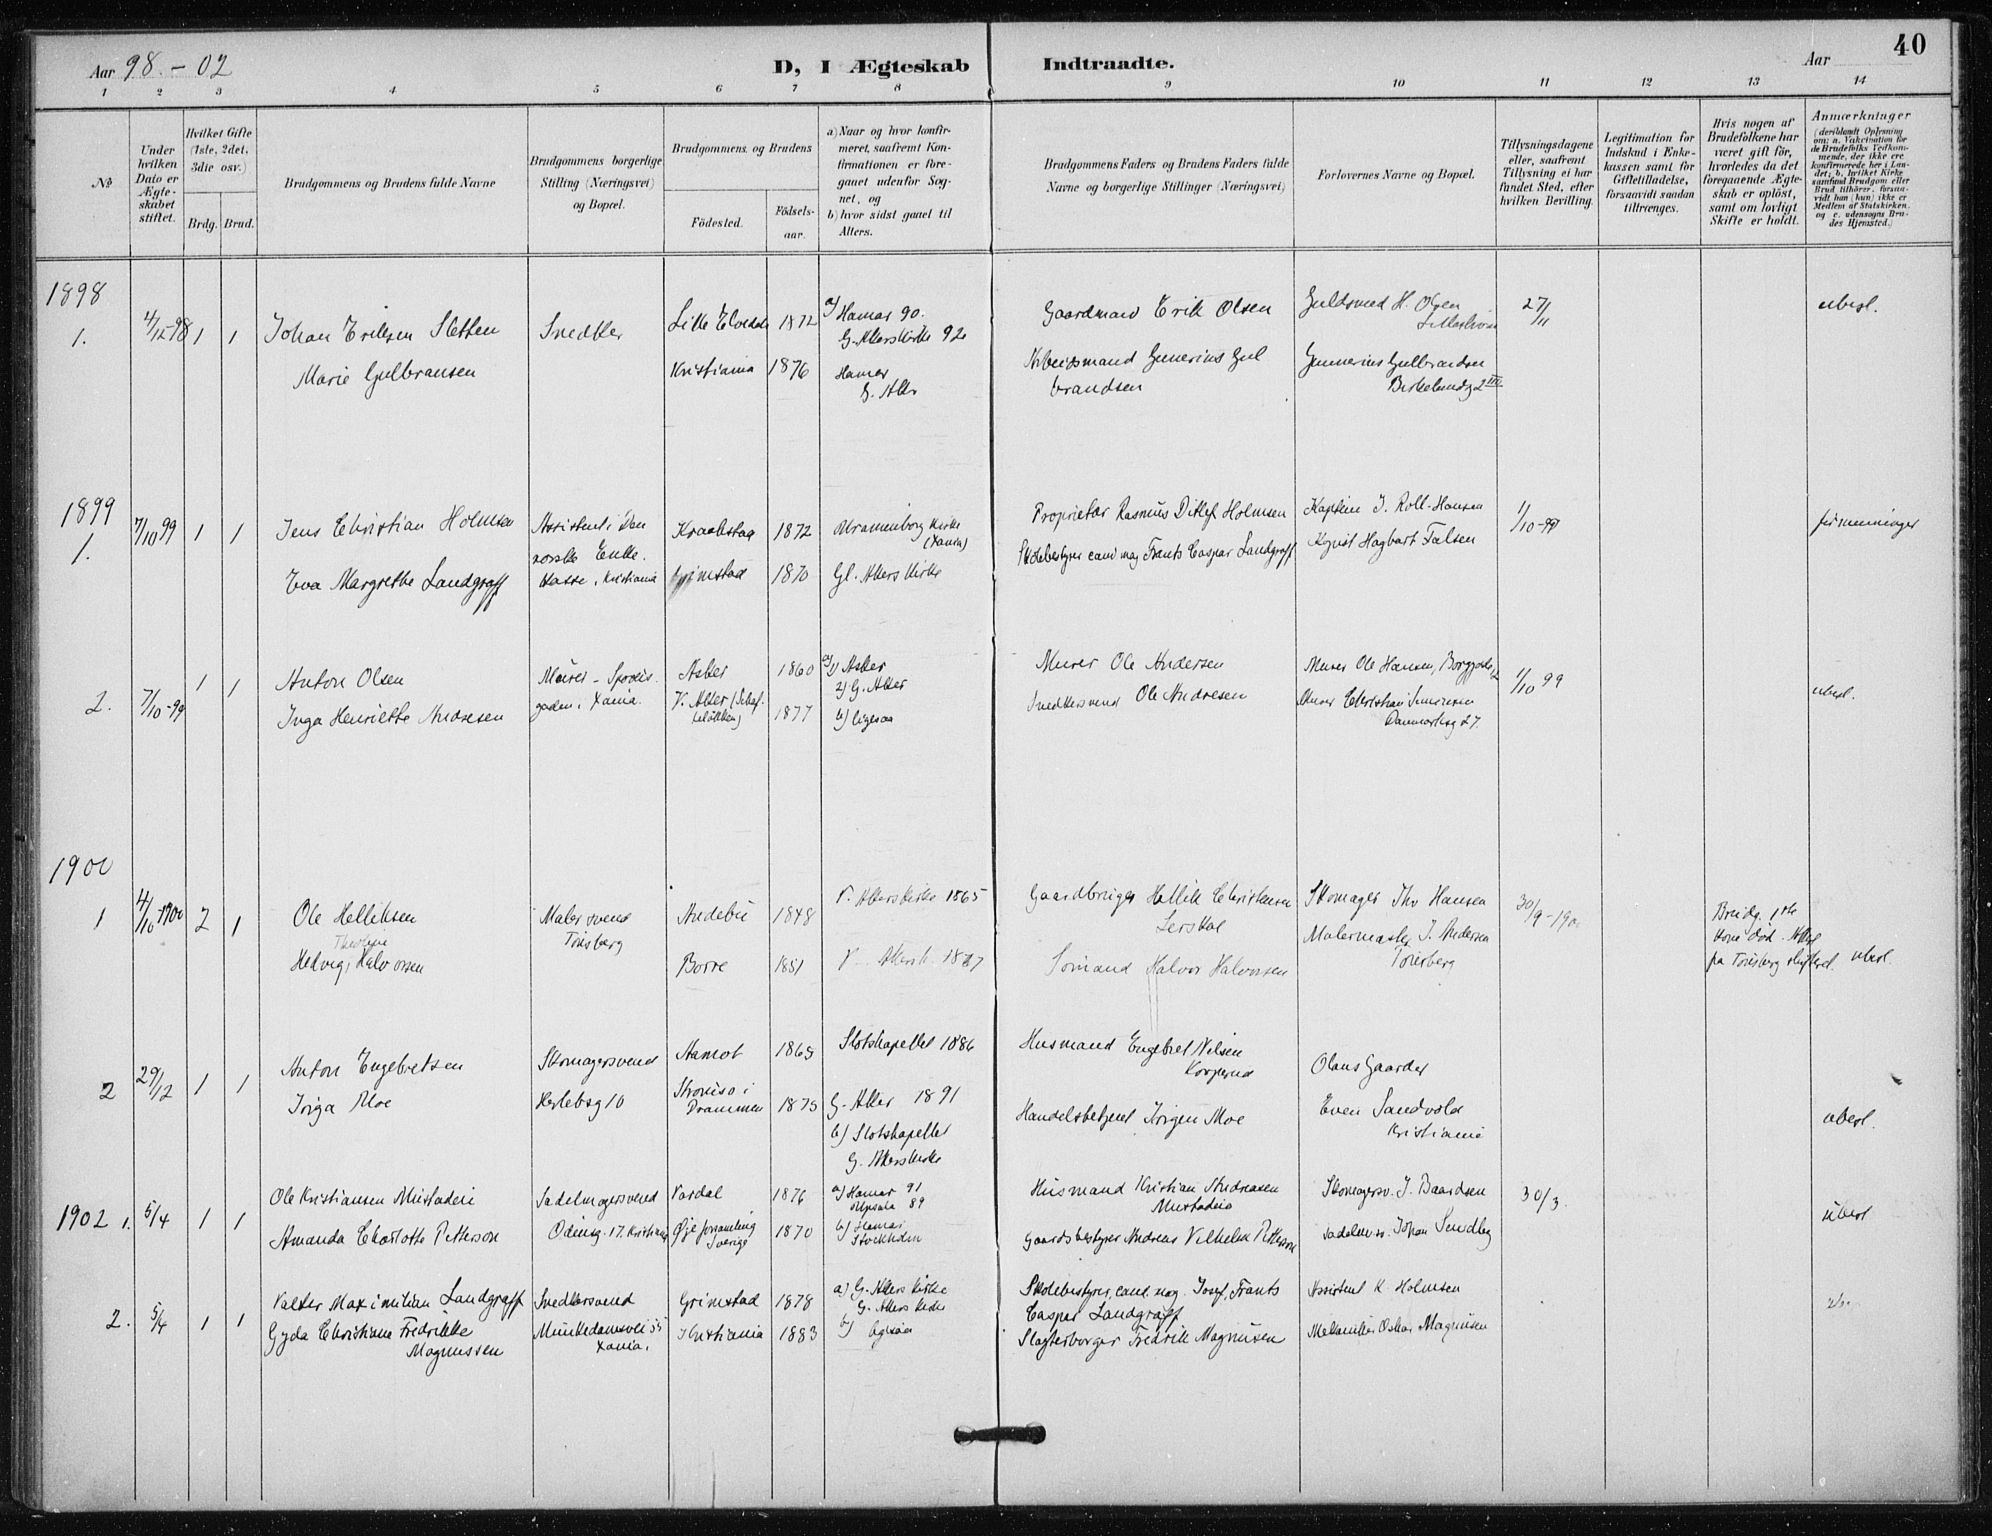 Aar 98.-02
D, I Ægteskab Indtraadte.
Aar
40
1 2 3 4 5 6 7 8 9 10 11 12 13 14
No
Under hvilken Dato er Ægteskabet stiftet.
Hvilket Gifte (1ste, 2det, 3die osv.)
Brdg. Brud.
Brudgommens og Brudens fulde Navne
Brudgommens borgerlige Stilling (Næringsvei) og Bopæl.
Brudgommens og Brudens
Fødested.
Fødselsaar.
a) Naar og hvor konfirmeret, saafremt Konfirmationen er foregaaet udenfor Sognet, og
b) hvor sidst gaaet til Alters.
Brudgommens Faders og Brudens Faders fulde Navne og borgerlige Stillinger (Næringsvei)
Forlovernes Navne og Bopæl.
Tillysningsdagene eller, saafremt Tillysning ei har fundet Sted, efter hvilken Bevilling.
Legitimation for Indskud i Enkekassen samt for Giftetilladelse, forsaavidt saadan tiltrænges.
Hvis nogen af Brudefolkene har været gift før, hvorledes da det foregaaende Ægteskab er opløst, samt om lovligt Skifte er holdt.
Anmærkninger
(deriblandt Oplysning om: a. Vakcination for de Brudefolks Vedkommende, der ikke ere konfirmerede her i Landet; b. hvilket Kirkesamfund Brudgom eller Brud tilhører, forsaavidt han (hun) ikke er Medlem af Statskirken, og c. udensogns Brudes Hjemsted.)
1898
1. 4/12-98 1 1
Johan Eriksen Sletten
Snedker
Lille Elvedal 1872
a) Hamar 90.
G. Akers Kirke 92
Gaardmand Erik Olsen
Guldsmed H. Olsen
27/11
ubesl.
Marie Gulbransen
Kristiania 1876
Hamar
G. Aker
Arbeidsmand Gunerius Gulbrandsen
Gunnerius Gulbrandsen
Birkelundg 2 III
1899
1. 7/10 99 1 1
Jens Christian Holmsen
Assistent i Den norske Enkekasse, Kristiania
Kraakstad 1872
Uranienborg Kirke (Xania)
Proprietær Rasmus Ditlef Holmsen
Kaptein J. Roll-Hansen
1/10-99
Eva Margrethe Landgraff
Grimstad 1870
Gl. Akers Kirke
Skolebestyrer cand mag Frants Caspar Landgraff
Hagbart Falsen
2. 7/10-99 1 1
Anton Olsen
Murer
Xania.
Asker 1860
a) 1) Asker
2) G. Aker
Murer Ole Andersen
Murer Ole Hansen,
1/10 99
ubesl.
Inga Henriette Andresen
V. Aker
1877
b) ligesaa
Snedkersvend Ole Andresen
Murer Christian Simensen
Danmarksg 27.
1900
1 4/10 1900 2 1
Ole Helliksen
Malersvend
Tønsberg
Andebu 1848
V. Akerskirke 1865
Gaardbruger Hallik Christensen
Lerskal
Skomager Thv Hansen
30/9-190
Brudg. 1ste
Kone død.
paa Tønsberg skifteret.
ubesl.
Hedvig Halvorsen
Borre 1851
V. Akersk. 1867
Sømand Halvor Halvorsen
Malermester J. Andersen
Tønsberg
2 29/12 1 1
Anton Engebretsen
Skomagersvend
Aamot 1865
Slotskapellet 1886
Husmand Engebret Nilsen
Olaus Gaarder
Inga Moe
Herslebsg 10
Strømsø i Drammen 1875
G. Aker 1891
b) Slotskapellet
G. Akerskirke
Handelsbetjent Jørgen Moe
Even Sandvold
Kristiania
ubesl.
1902 1. 5/4 1 1
Ole Kristiansen Mustadeie
Sadelmagersvend
Odinsg. 17. Kristiania
Vardal 1876
a) Hamar 91
Upsala 89
Husmand Kristian Andreasen
Mustadeie
Skomagersv. J. Baardsen
30/3.
ubesl
Amanda Charlotte Petterson
Øje forsamling
Sverige
1870
b) Hamar
Stockholm
Gaardsbestyrer Andreas Vilhelm Petterson
Sadelm.sv. Johan Sundby
2. 5/4 1 1
Valter Maximilian Landgraff
Snedkersvend
Munkedamsvei 55
Xania.
Grimstad 1878
a) G. Akers Kirke
G. Akers Kirke
Skolebestyrer, cand. mag. Josef Frants
Caspar Landgraff
Assistent K. Holmsen
Gyda Christiane Fredrikke
Magnussen
Kristiania 1883
b) ligesaa
Slagterborger Fredrik Magnusen
Mekaniker Oskar Magnusen